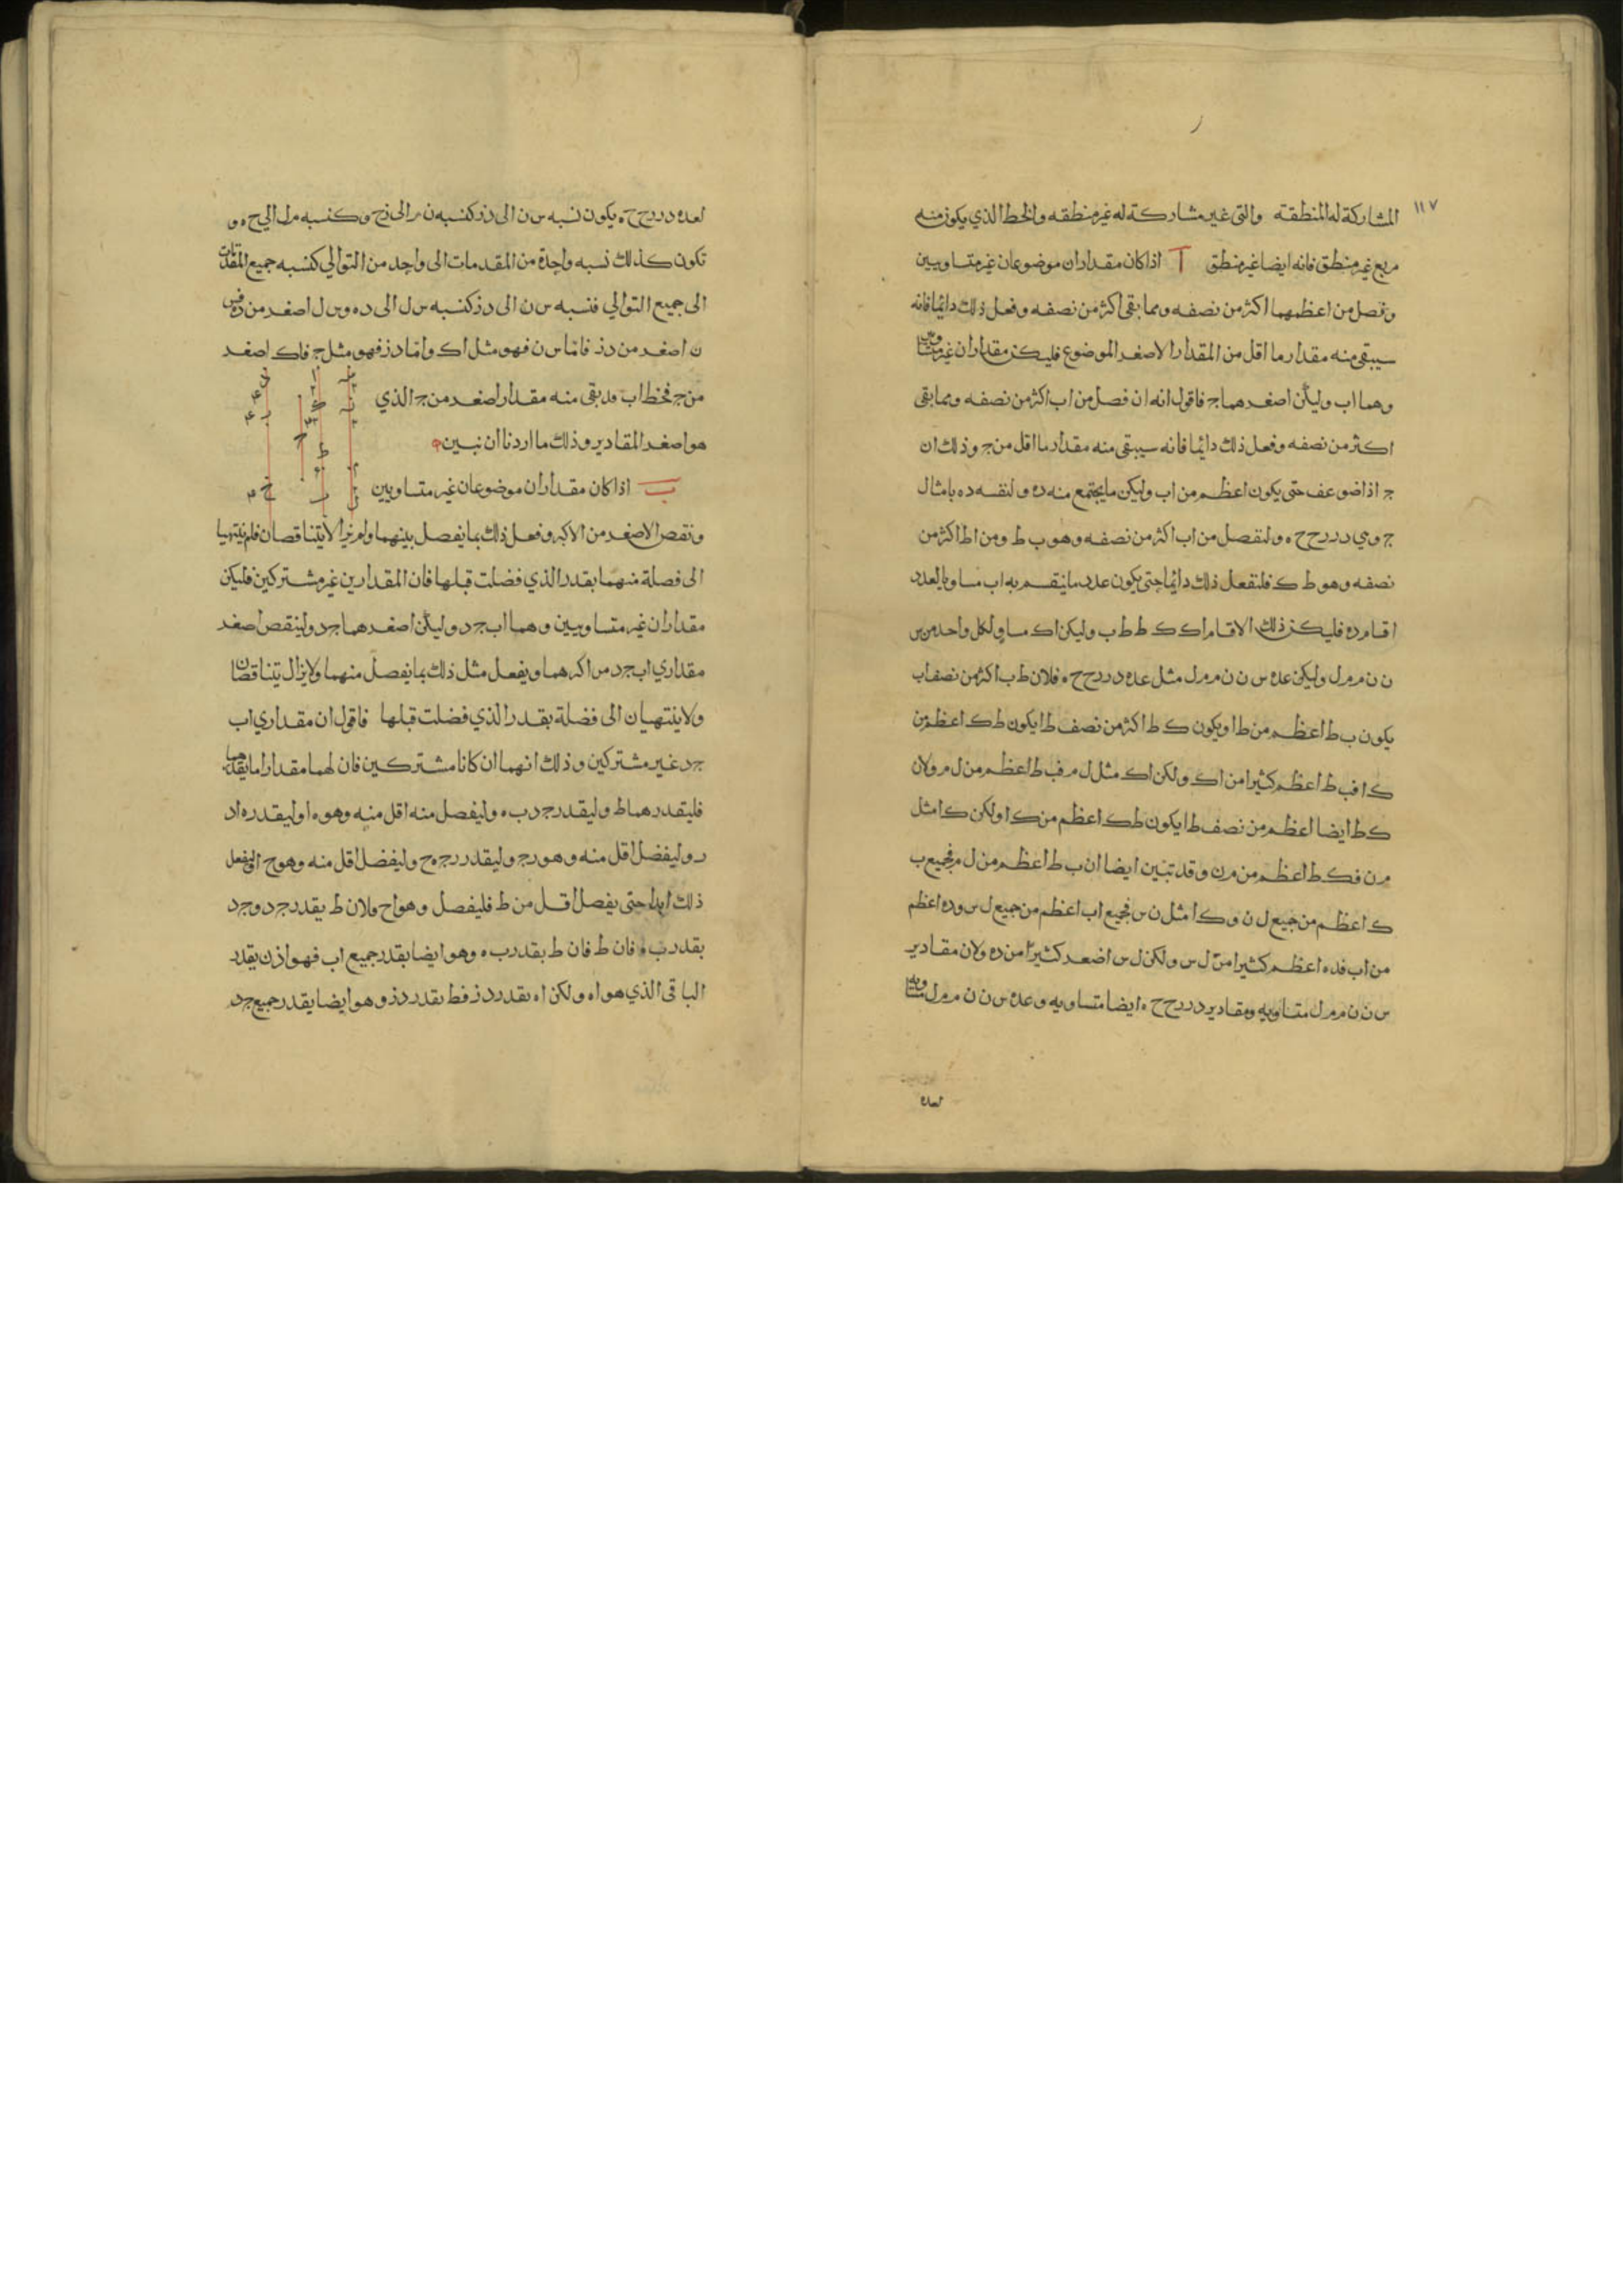 ١١٧
المشاركة له المنطقة والتى غير مشاركة له غير منطقه والخط الذي يكون منه
مربع غير منطق فانه ايضا غير منطق ا اذا كان مقداران موضوعان غير متساويين
وفصل من اعظمهما اكثر من نصفه ومما بقى اكثر من نصفه وفعل ذلك دائما فانه
سيبقى منه مقدار ما اقل من المقدار الاصغر الموضوع فليكن مقداران غير متساويين
وهما اب وليكن اصغرهما ج فاقول انه ان فصل من اب اكثر من نصفه ومما بقى
اكثر من نصفه وفعل ذلك دائما فانه سيبقى منه مقدار ما اقل من ج وذلك ان
ج اذا ضوعف حتى يكون اعظم من اب وليكن ما يجتمع منه ده ولنقسه ده بامثال
ج وهي در رح ح ه ولنفصل من اب اكثر من نصفه وهو ب ط ومن اط اكثر من
نصفه وهو ط ك فلنفعل ذلك دائما حتى يكون عدد ما ينقسم به اب مساويا لعدد
اقسام ده فليكن ذلك الاقسام اك ك ط ط ب وليكن اك مساو لكل واحد من س
ن ن م م ل وليكن عده س ن ن م م ل مثل عده در رح ح ه فلان ط ب اكثر من نصف اب
يكون ب ط اعظم من ط ا ويكون ك ط اكثر من نصف ط ا يكون ط ك اعظم من
ك ا فب ط اعظم كثيرا من اك ولكن اك مثل ل م فب ط اعظم من ل م ولان
ك ط ايضا اعظم من نصف ط ا يكون ط ك اعظم من ك ا ولكن ك ا مثل
م ن فك ط اعظم من م ن وقد تبين ايضا ان ب ط اعظم من ل م فجميع ب
ك اعظم من جميع ل ن وك ا مثل ن س فجميع اب اعظم من جميع ل س وده اعظم
من اب فده اعظم كثيرا من ل س ولكن ل س اصغر كثيرا من ده ولان مقادير
س ن ن م م ل متساويه ومقادير در رح ح ه ايضا متساويه وعده س ن ن م م ل مساويه
لعده
لعده در رح ح ه يكون نسبه س ن الى دز كنسبه ن م الى زح وكنسبه م ل الى ح ه و
تكون كذلك نسبه واحدة من المقدمات الى واحد من التوالي كنسبه جميع المقدمات
الى جميع التوالي فنسبه س ن الى دز كنسبه س ل الى ده وس ل اصغر من ده فس
ن اصغر من دز فاما س ن فهو مثل اك واما دز فهو مثل ج فاك اصغر
من ج فخط اب قد بقى منه مقدار اصغر من ج الذي
هو اصغر المقادير وذلك ما اردنا ان نبين ه
ب اذا كان مقداران موضوعان غير متساويين
ونقص الاصغر من الاكبر وفعل ذلك بما يفصل بينهما ولم يزالا يتناقصان فلم ينتهيا
الى فصلة منهما بقدر الذي فضلت قبلها فان المقدارين غير مشتركين فليكن
مقداران غير متساويين وهما اب جد وليكن اصغرهما جد ولينقص اصغر
مقداري اب جد من اكبرهما ويفعل مثل ذلك بما يفصل منهما ولا يزال يتناقصان
ولا ينتهيان الى فضلة بقدر الذي فضلت قبلها فاقول ان مقداري اب
جد غير مشتركين وذلك انهما ان كانا مشتركين فان لهما مقدارا ما يقدرهما
فليقدرهما ط وليقدر جد ب ه وليفصل منه اقل منه وهو ه ا وليقدر ه ا د
ر وليفضل اقل منه وهو رج وليقدر رج ه ح وليفضل اقل منه وهو ح ا وليفعل
ذلك ابدا حتى يفصل اقل من ط فليفصل وهو اح فلان ط يقدر جد وجد
بقدر ب ه فان ط فان ط بقدر ب ه وهو ايضا بقدر جميع اب فهو اذن يقدر
الباقى الذي هو اه ولكن اه بقدر دز فط بقدر دز وهو ايضا يقدر جميع جد